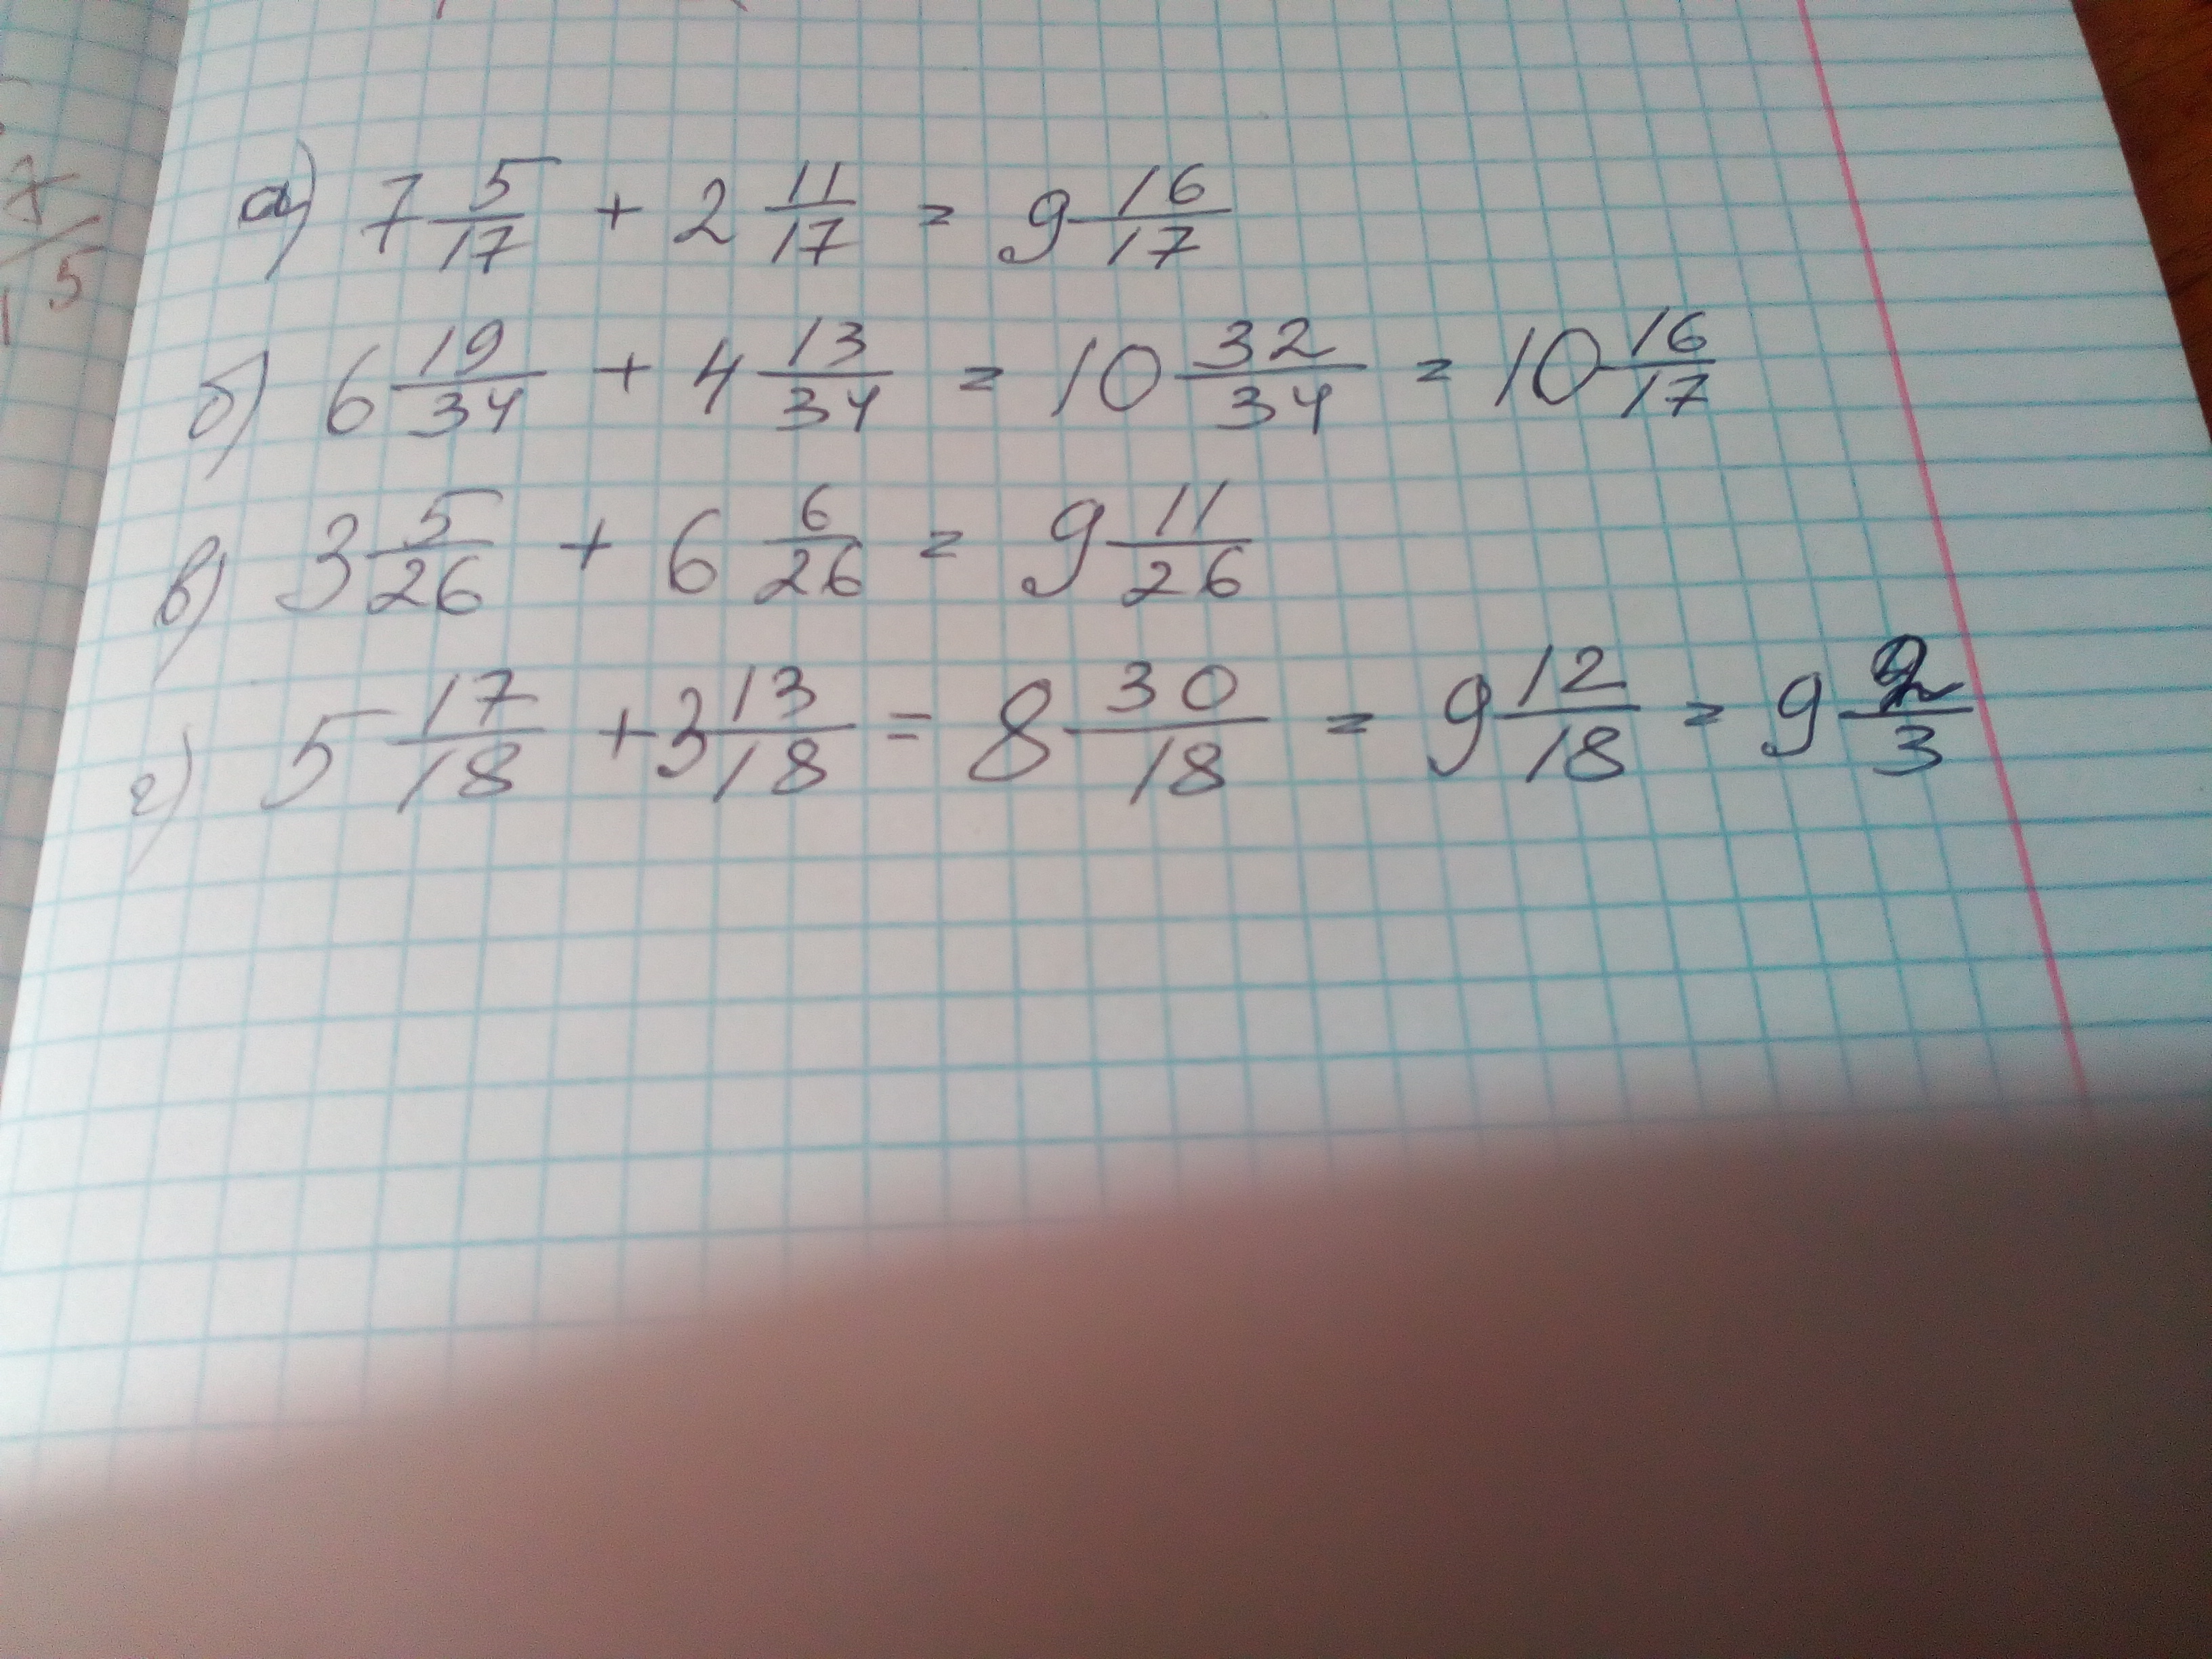 а) 7 5/17 + 2 11/17 = 9 16/17
б) 6 19/34 + 4 13/34 = 10 32/34 = 10 16/17
в) 3 5/26 + 6 6/26 = 9 11/26
г) 5 17/18 + 3 13/18 = 8 30/18 = 9 12/18 = 9 2/3